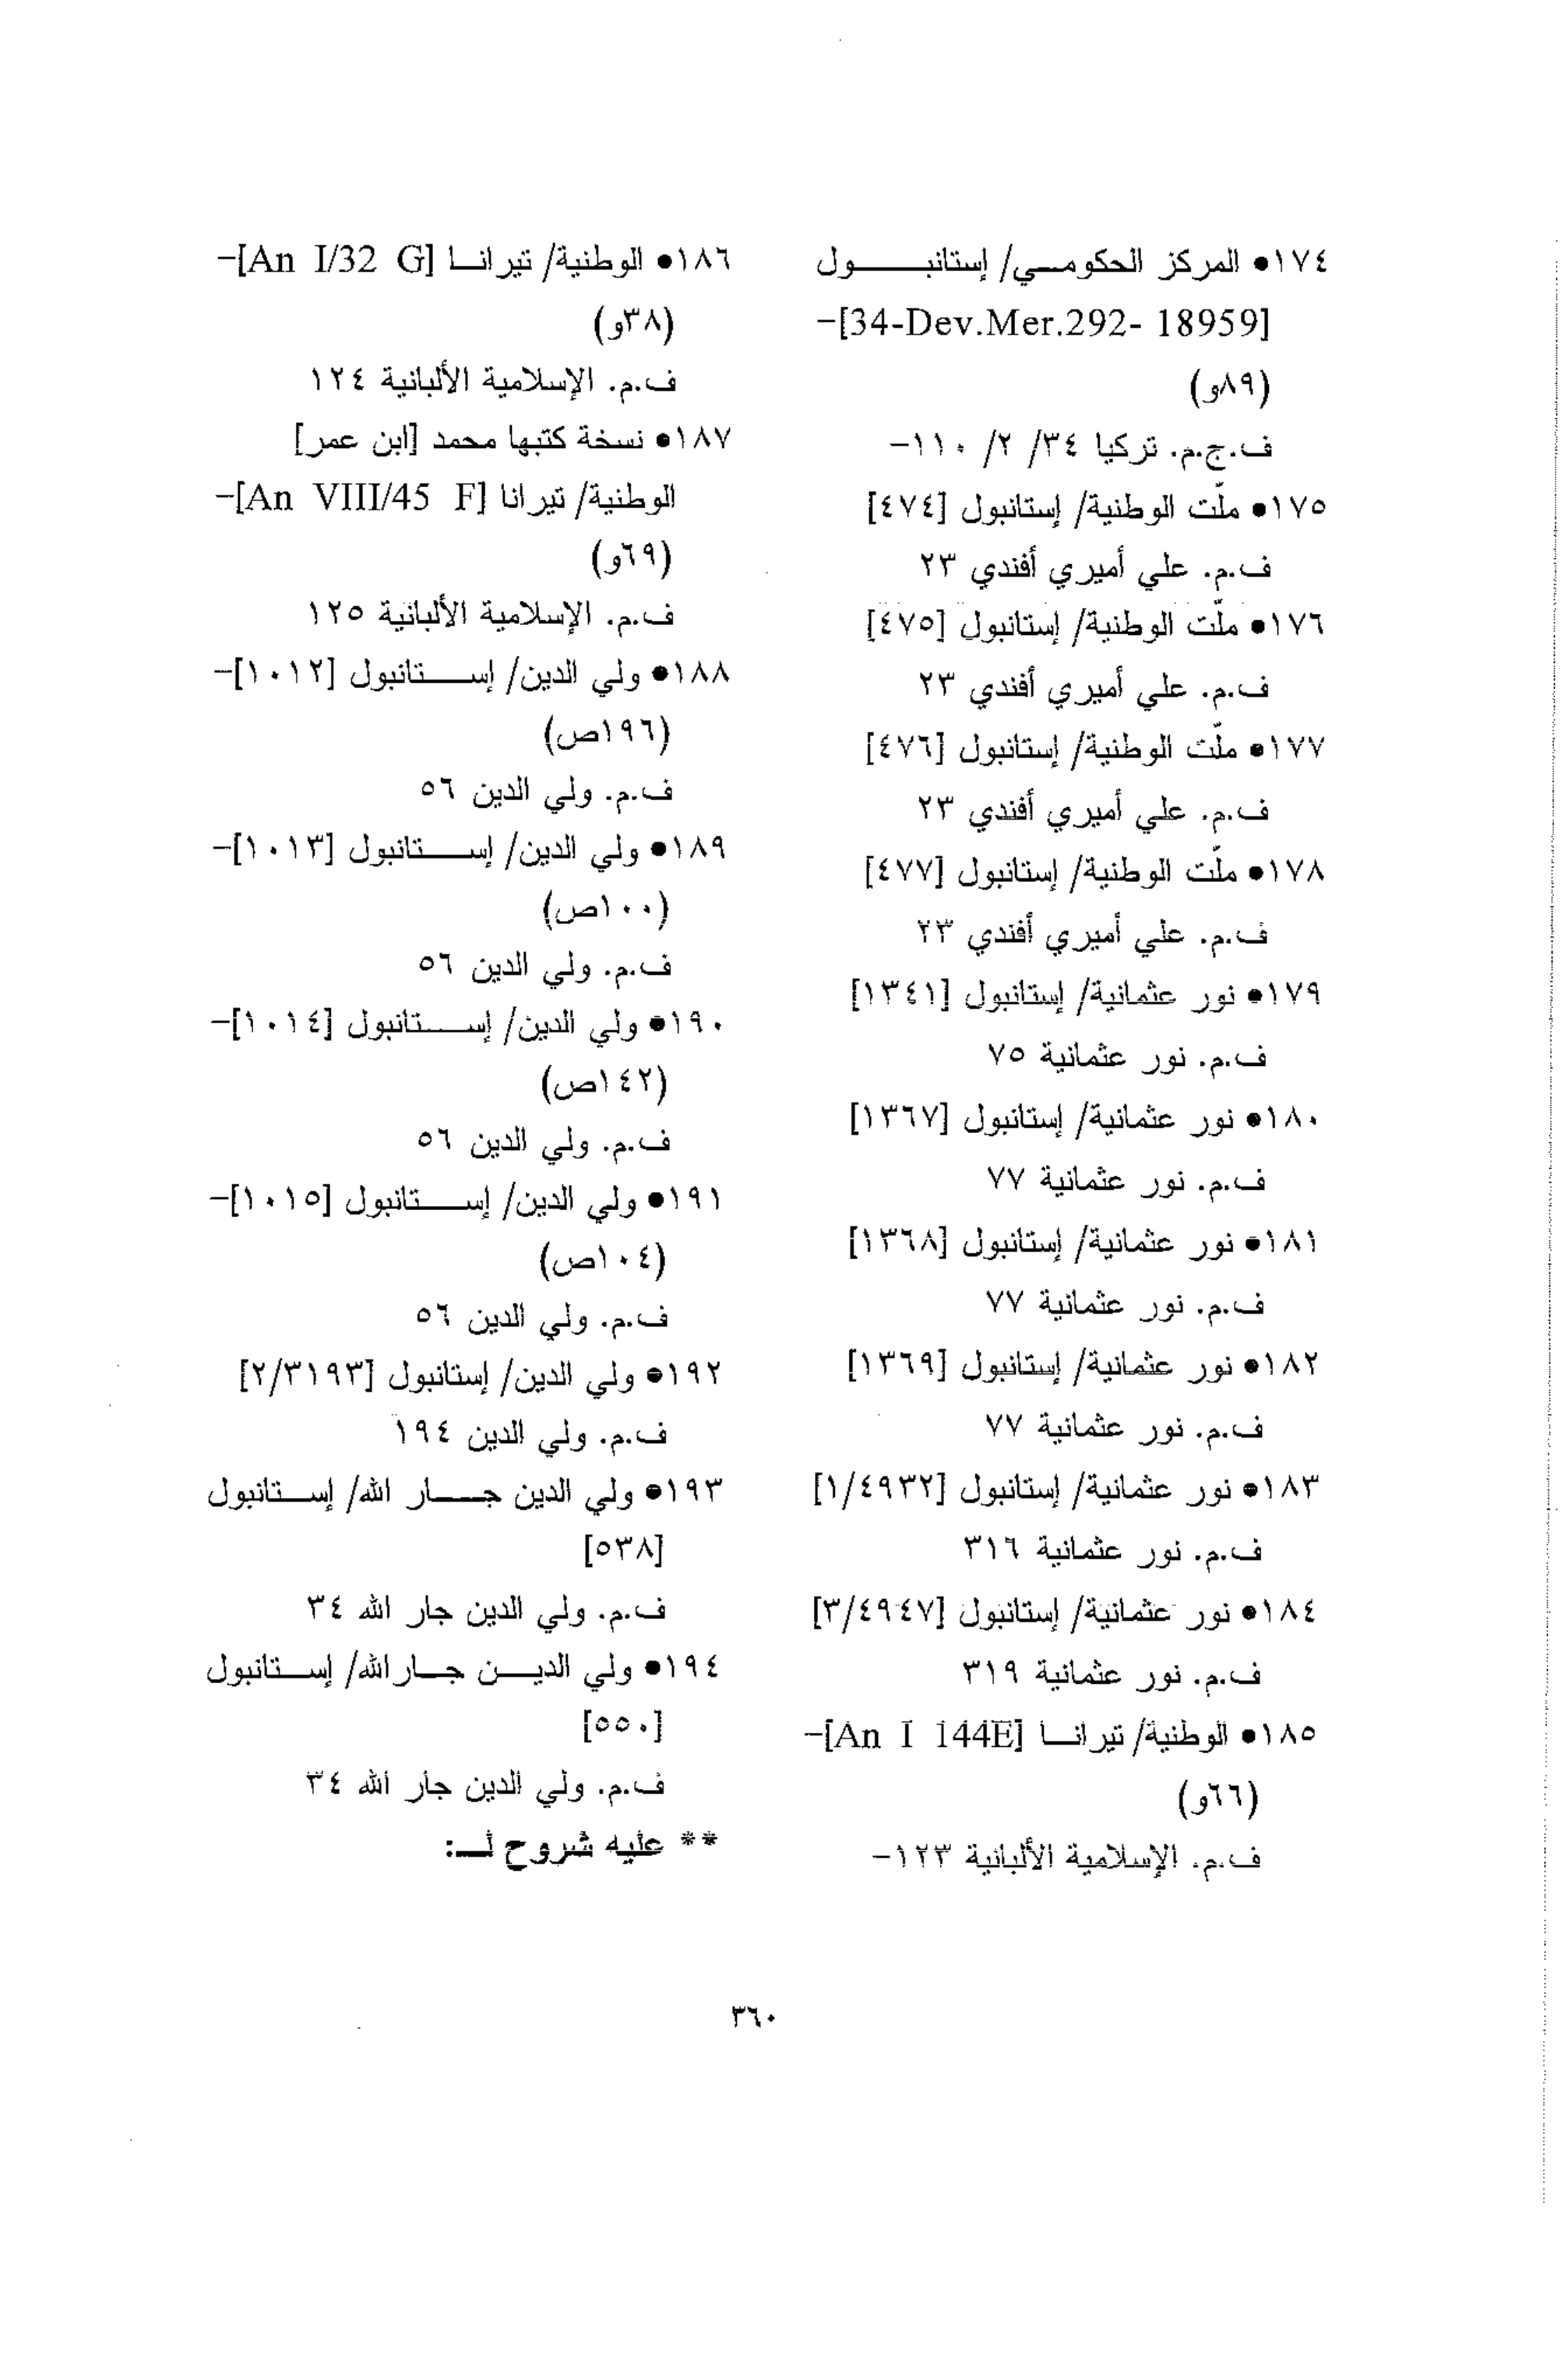 ١٧٤● المركز الحكومي/ إستانبول
[34-Dev.Mer.292- 18959]–
(٨٩و)
ف.ج.م. تركيا ٣٤/ ٢/ ١١٠–
١٧٥● ملّت الوطنية/ إستانبول [٤٧٤]
ف.م. علي أميري أفندي ٢٣
١٧٦● ملّت الوطنية/ إستانبول [٤٧٥]
ف.م. علي أميري أفندي ٢٣
١٧٧● ملّت الوطنية/ إستانبول [٤٧٦]
ف.م. علي أميري أفندي ٢٣
١٧٨● ملّت الوطنية/ إستانبول [٤٧٧]
ف.م. علي أميري أفندي ٢٣
١٧٩● نور عثمانية/ إستانبول [١٣٤١]
ف.م. نور عثمانية ٧٥
١٨٠● نور عثمانية/ إستانبول [١٣٦٧]
ف.م. نور عثمانية ٧٧
١٨١● نور عثمانية/ إستانبول [١٣٦٨]
ف.م. نور عثمانية ٧٧
١٨٢● نور عثمانية/ إستانبول [١٣٦٩]
ف.م. نور عثمانية ٧٧
١٨٣● نور عثمانية/ إستانبول [١/٤٩٣٢]
ف.م. نور عثمانية ٣١٦
١٨٤● نور عثمانية/ إستانبول [٣/٤٩٤٧]
ف.م. نور عثمانية ٣١٩
١٨٥● الوطنية/ تيرانا [An I 144E]–
(٦٦و)
ف.م. الإسلامية الألبانية ١٢٣–
١٨٦● الوطنية/ تيرانا [An I/32 G]–
(٣٨و)
ف.م. الإسلامية الألبانية ١٢٤
١٨٧● نسخة كتبها محمد [ابن عمر]
الوطنية/ تيرانا [An VIII/45 F]–
(٦٩و)
ف.م. الإسلامية الألبانية ١٢٥
١٨٨● ولي الدين/ إستانبول [١٠١٢]–
(١٩٦ص)
ف.م. ولي الدين ٥٦
١٨٩● ولي الدين/ إستانبول [١٠١٣]–
(١٠٠ص)
ف.م. ولي الدين ٥٦
١٩٠● ولي الدين/ إستانبول [١٠١٤]–
(١٤٢ص)
ف.م. ولي الدين ٥٦
١٩١● ولي الدين/ إستانبول [١٠١٥]–
(١٠٤ص)
ف.م. ولي الدين ٥٦
١٩٢● ولي الدين/ إستانبول [٢/٣١٩٣]
ف.م. ولي الدين ١٩٤
١٩٣● ولي الدين جار الله/ إستانبول
[٥٣٨]
ف.م. ولي الدين جار الله ٣٤
١٩٤● ولي الدين جارالله/ إستانبول
[٥٥٠]
ف.م. ولي الدين جار الله ٣٤
** عليه شروح لـ:
٣٦٠